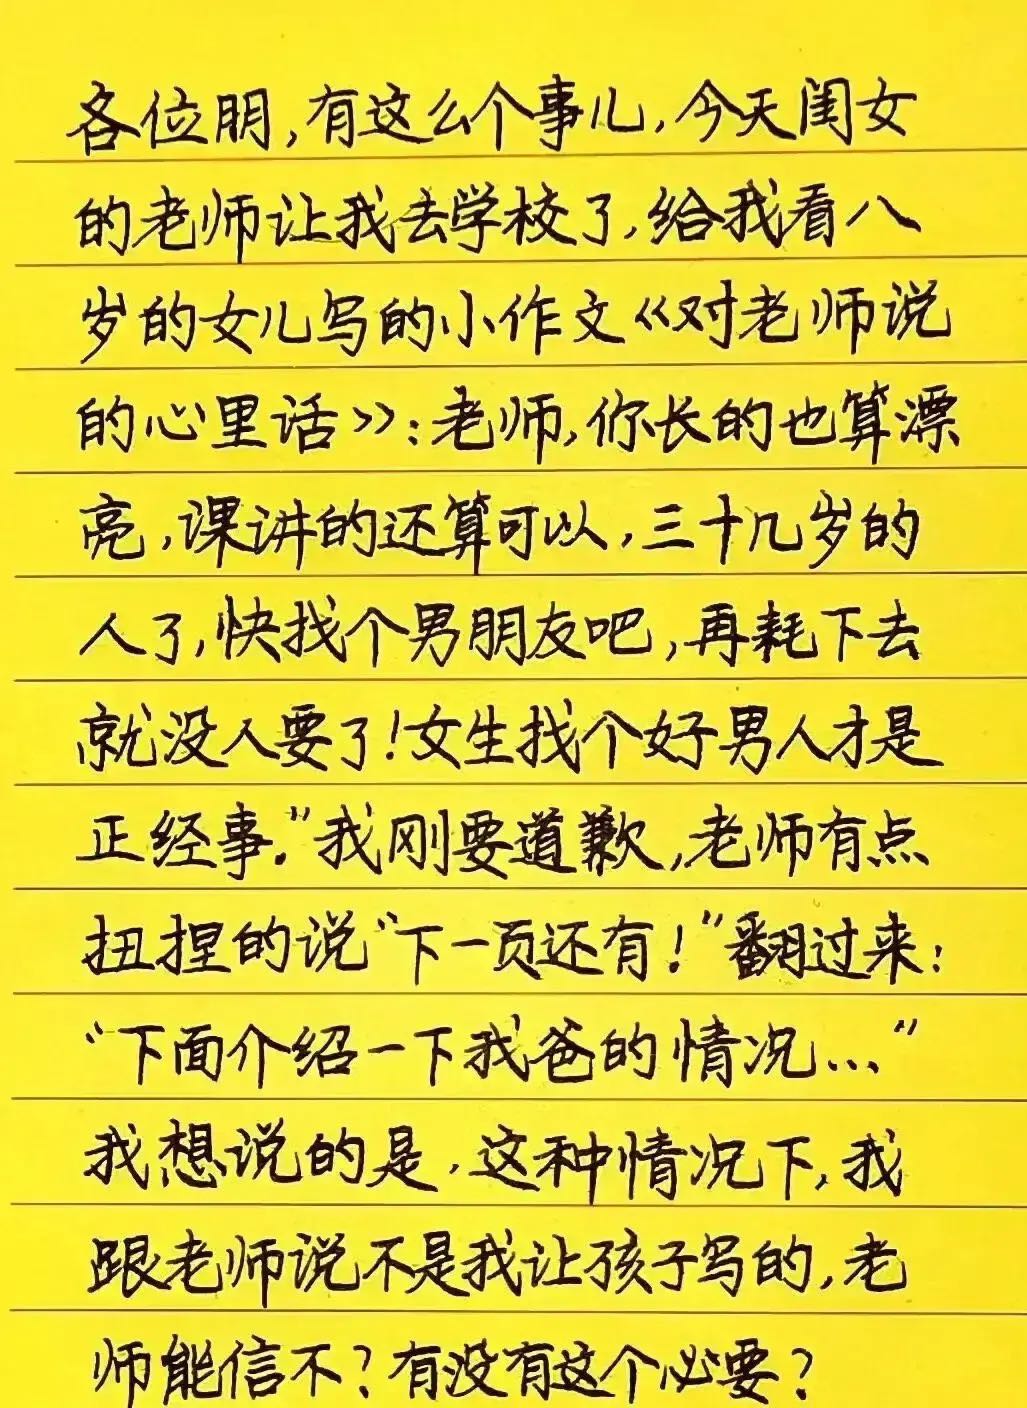 各位朋,有这么个事儿,今天闺女
的老师让我去学校了,给我看八
岁的女儿写的小作文《对老师说
的心里话》:老师,你长的也算漂
亮,课讲的还算可以,三十几岁的
人了,快找个男朋友吧,再耗下去
就没人要了!女生找个好男人才是
正经事。”我刚要道歉,老师有点
扭捏的说“下一页还有!”翻过来:
“下面介绍一下我爸的情况...”
我想说的是,这种情况下,我
跟老师说不是我让孩子写的,老
师能信不?有没有这个必要?